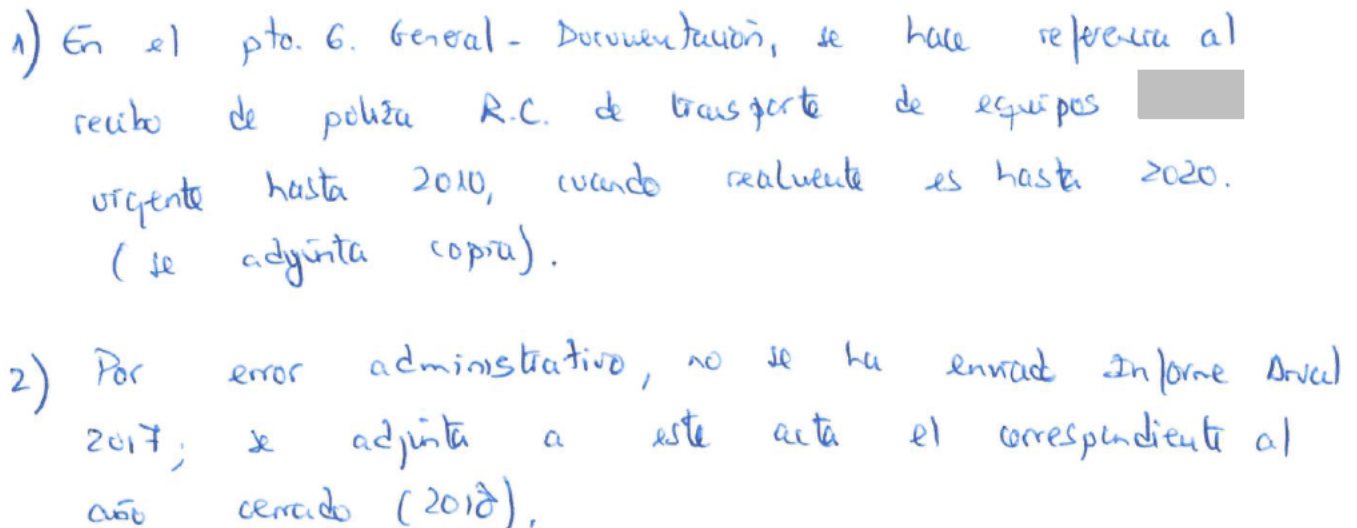 1) En el pto. 6. General - Documentación, se hace referencia al
recibo de poliza R.C. de transporte de equipos
urgente hasta 2010, cuando realmente es hasta 2020.
(se adjunta copia).
2) Por error administrativo, no se ha enviad Informe Anual
2017; se adjunta a este acta el correspondiente al
año cerrado (2018).